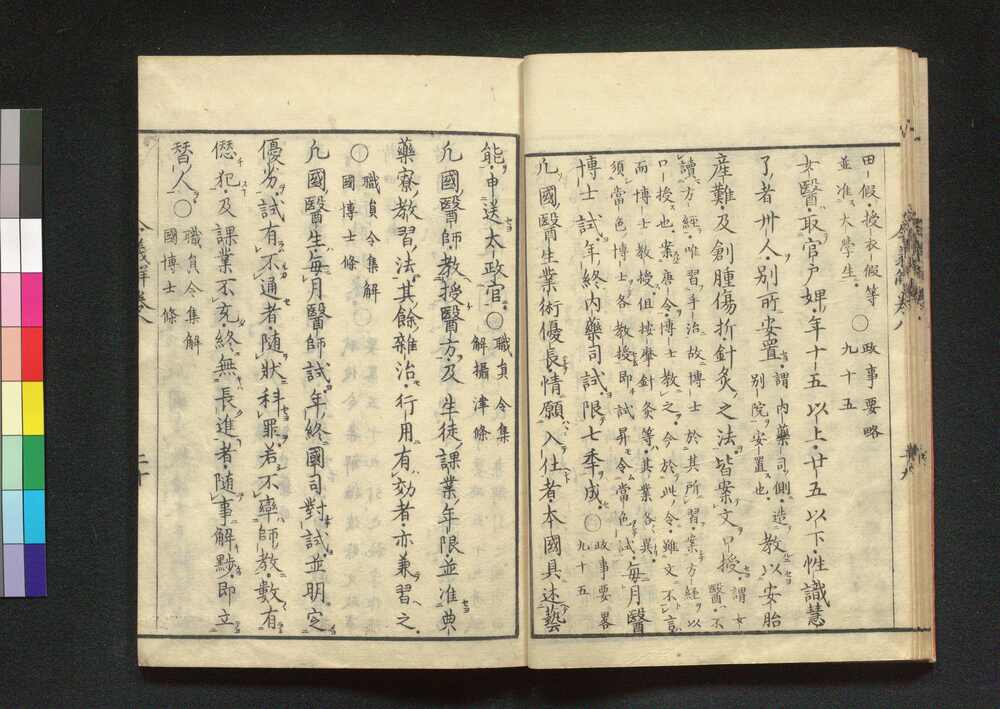 田假授衣假等
並准大學生。○政事要略
九十五
女醫取官戸婢年十五以上廿五以下性識慧
了者卅人別所安置謂内藥司側造
別院安置也教以安胎
産難及創腫傷折針灸之法皆案文口授謂女
醫不
讀方經唯習手治故博士於其所習案方經以
口授也案唐令博士教之今於此令雖文不言
而博士教授但按摩針灸等其業各異
須當色博士各教授即試昇令當色試毎月醫
博士試年終内藥司試限七季成○政事要畧
九十五
凡國醫生業術優長情願入仕者本國具述藝
能申送太政官○職員令集
解攝津條
凡國醫師教授醫方及生徒課業年限並准典
藥寮教習法其餘雜治行用有効者亦兼習之
○職員令集解
國博士條
凡國醫生毎月醫師試年終國司對試並明定
優劣試有不通者隨狀科罪若不率師教數有
愆犯及課業不充終無長進者隨事解黜即立
替人○職員令集解
國博士條